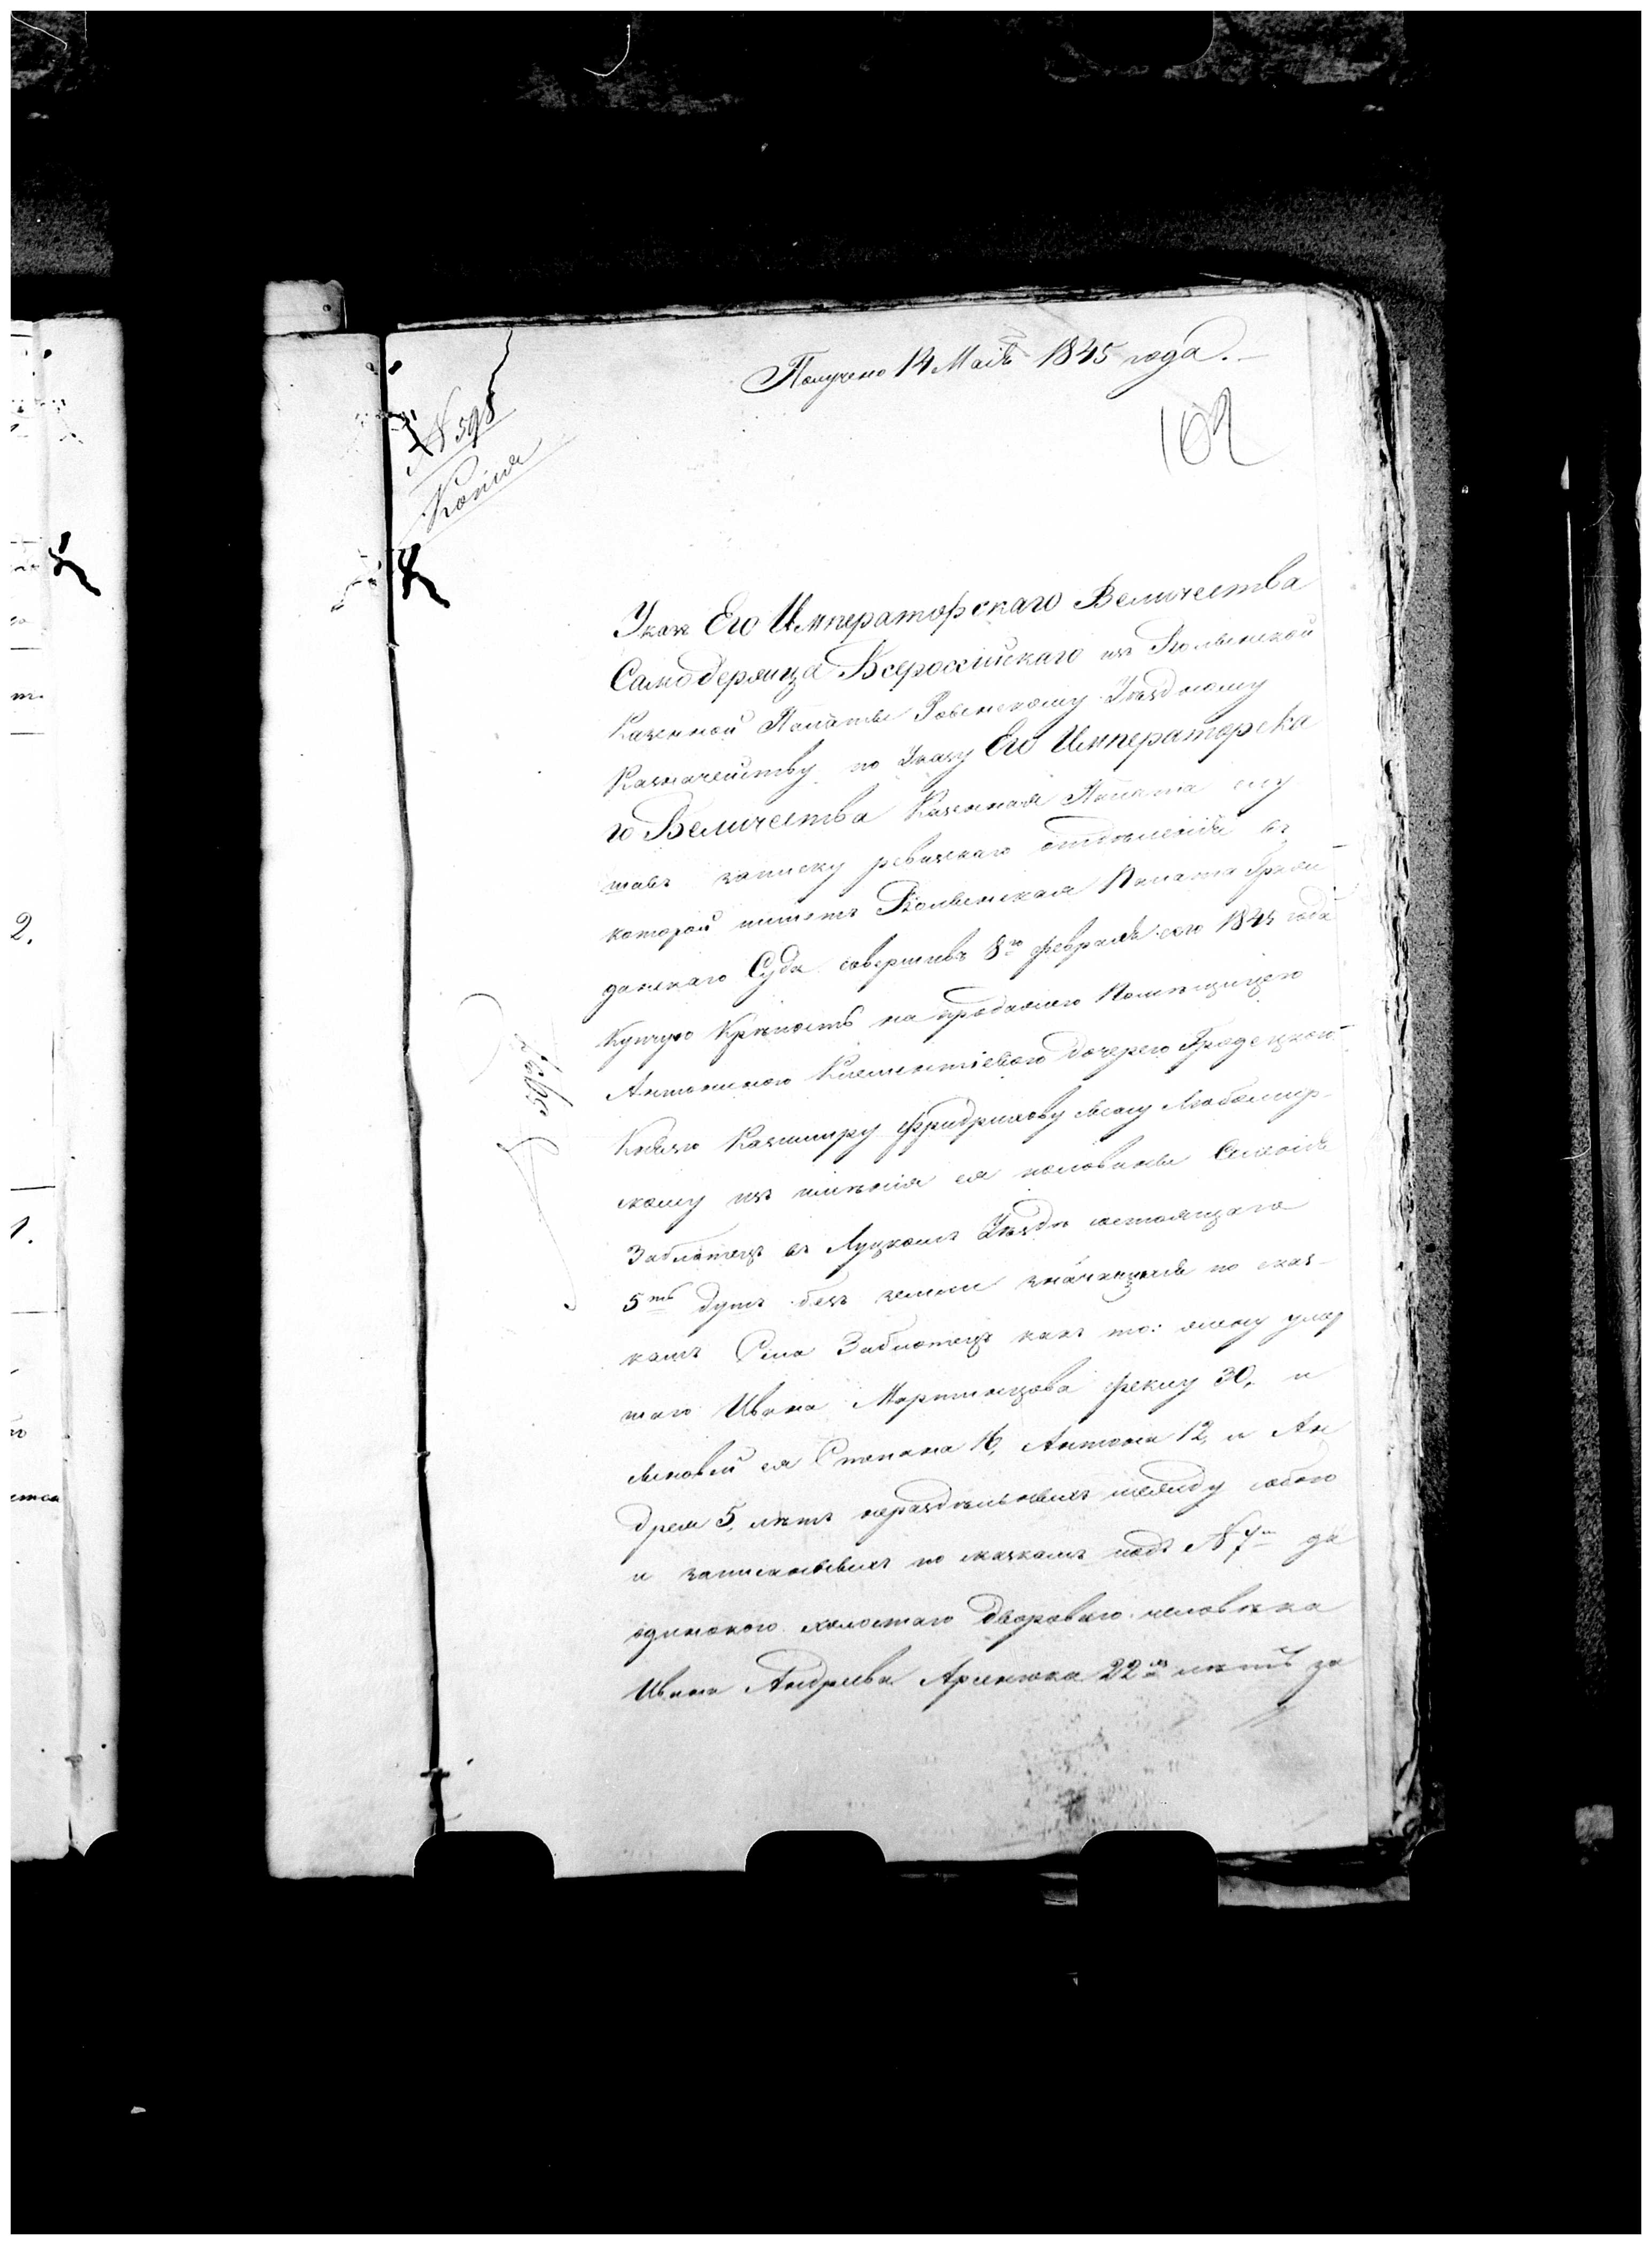 Получено 14 Маія 1845 года.
102
N 598
Копія
Указъ Его Императорскаго Величества
Самодержца Всероссійскаго изъ Волынской
Казенной Палаты Ровенскому Уѣздному
Казначейству по Указу Его Императорска
го Величества Казенная Палата слу
шавъ записку ревизскаго отдѣленія въ
которой пишетъ Волынская Палата Граж
данскаго Суда совершивъ 8го февраля сего 1845 года
купчую крѣпость на продажею Помѣщицею
Антониною Климентіевою дочерею Гродецкой
Князю Казимиру Фридрихову сыну Любомир-
скому изъ имѣнія ея половины Селенія
Заблотецъ въ Луцкомъ Уѣздѣ состоящаго
5ть душъ безъ земли значащихся по сказ-
камъ Села Заблотецъ какъ то: жену умер
шаго Ивана Феклу 30, и
сыновей ея Степана 16, Антона 12, и Ан
дрея 5, лѣтъ нераздѣльныхъ между собою
и записанныхъ по сказкамъ подъ N 7м да
одинокого холостаго двороваго человѣка
Ивана Андреева 22хъ лѣтъ за